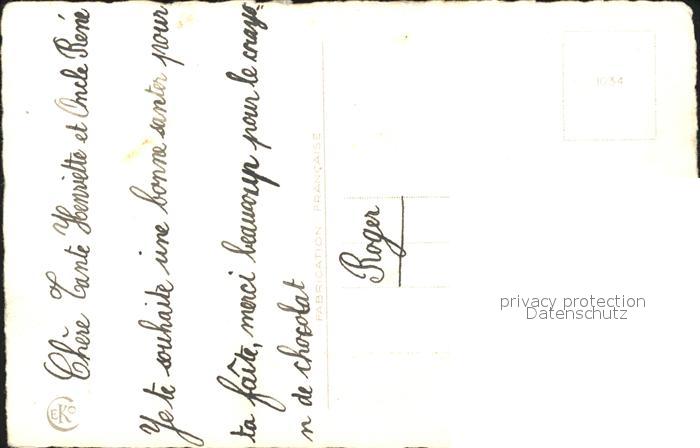 Chère Tante Henriette et Oncle René
Je te souhaite une bonne santer pour
ta faîte, merci beaucoup pour le crayo=
n de chocolat
Roger
FABRICATION FRANÇAISE
1034
EKO
privacy protection
Datenschutz